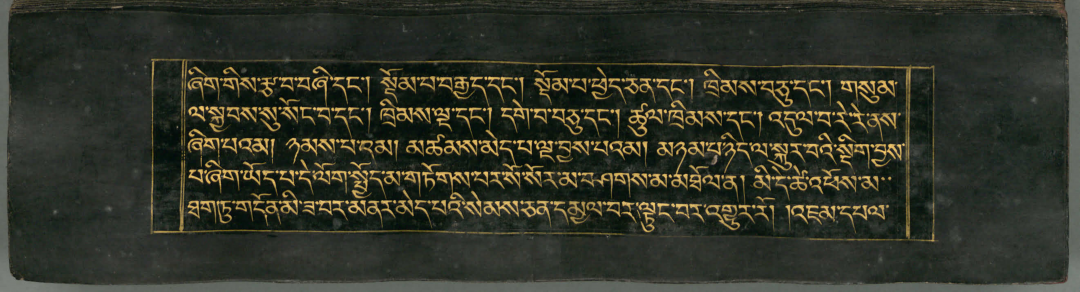 ཞིག་གིས་རྩ་བ་བཞི་དང་། སྡོམ་པ་བརྒྱད་དང་། སྡོམ་པ་ཕྱེད་ཅན་དང་། ཁྲིམས་བཅུ་དང་། གསུམ་
ལ་སྐྱབས་སུ་སོང་བ་དང་། ཁྲིམས་ལྔ་དང་། དགེ་བ་བཅུ་དང་། ཚུལ་ཁྲིམས་དང་། འདུལ་བ་རེ་རེ་ནས་
ཞིག་པའམ། ཉམས་པ་འམ། མཚམས་མེད་པ་ལྔ་བྱས་པའམ། མཉམ་པ་ཉིད་ལ་སྐུར་བའི་སྡིག་བྱས་
པ་ཞིག་ཡོད་པ་དེ་ལོག་སྤྱོད་མ་གཏོགས་པར་སོ་སོར་མ་བཤགས་མ་མཐོལ་ན། མི་དེ་ཚེ་འཕོས་མ་
ཐག་ཏུ་གདོན་མི་ཟ་བར་མནར་མེད་པའི་སེམས་ཅན་དམྱལ་བར་ལྟུང་བར་འགྱུར་རོ། །འཇམ་དཔལ་